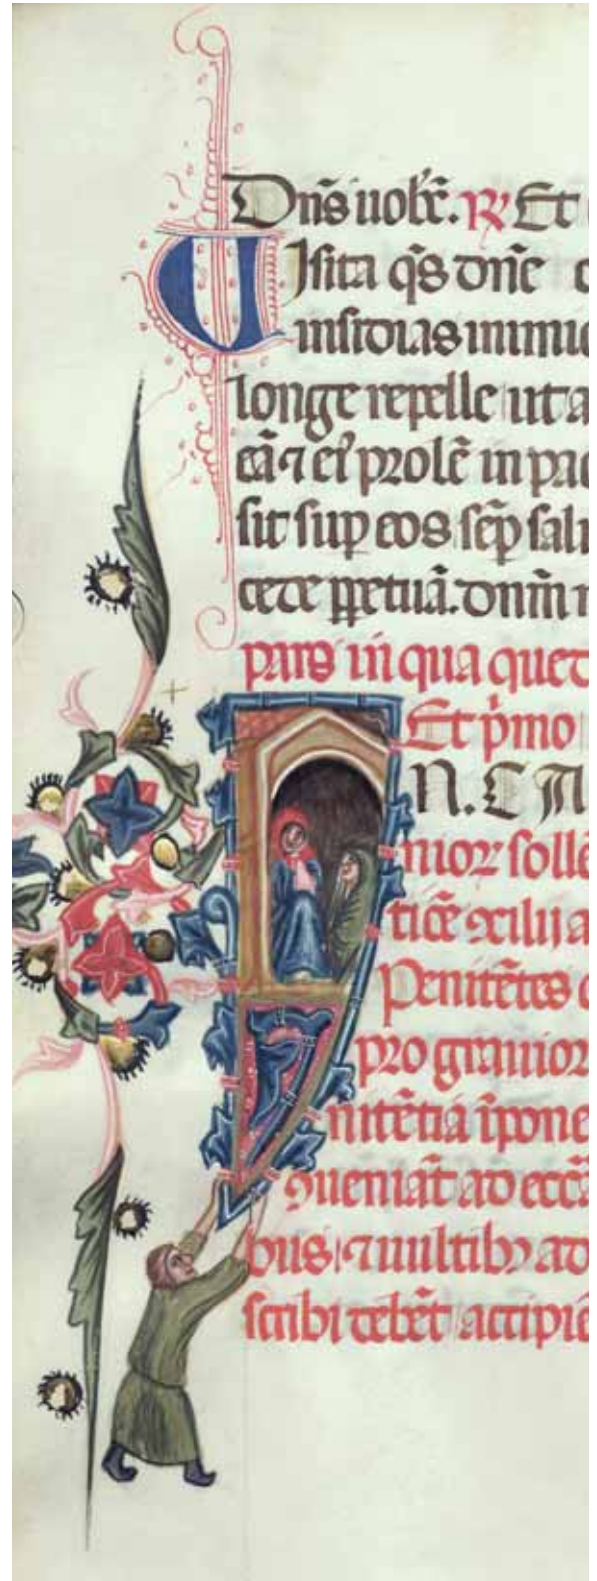 Dn̄s uob̄c̄. ℟ Et
VIsita q̄s dn̄e
insidias inimic
longe repelle ut a
eā ⁊ ei' prolē in pac
sit sup eos sēp
cete ꝑpetuā. dnm̄
pars in qua
Et p̄mo
N.
nior sollē
tic̄e
Penitētes
pro grauior
nitētia īpone
ꝯueniāt ad eccā
bus ⁊ multib ad
scribi debēt accipiē